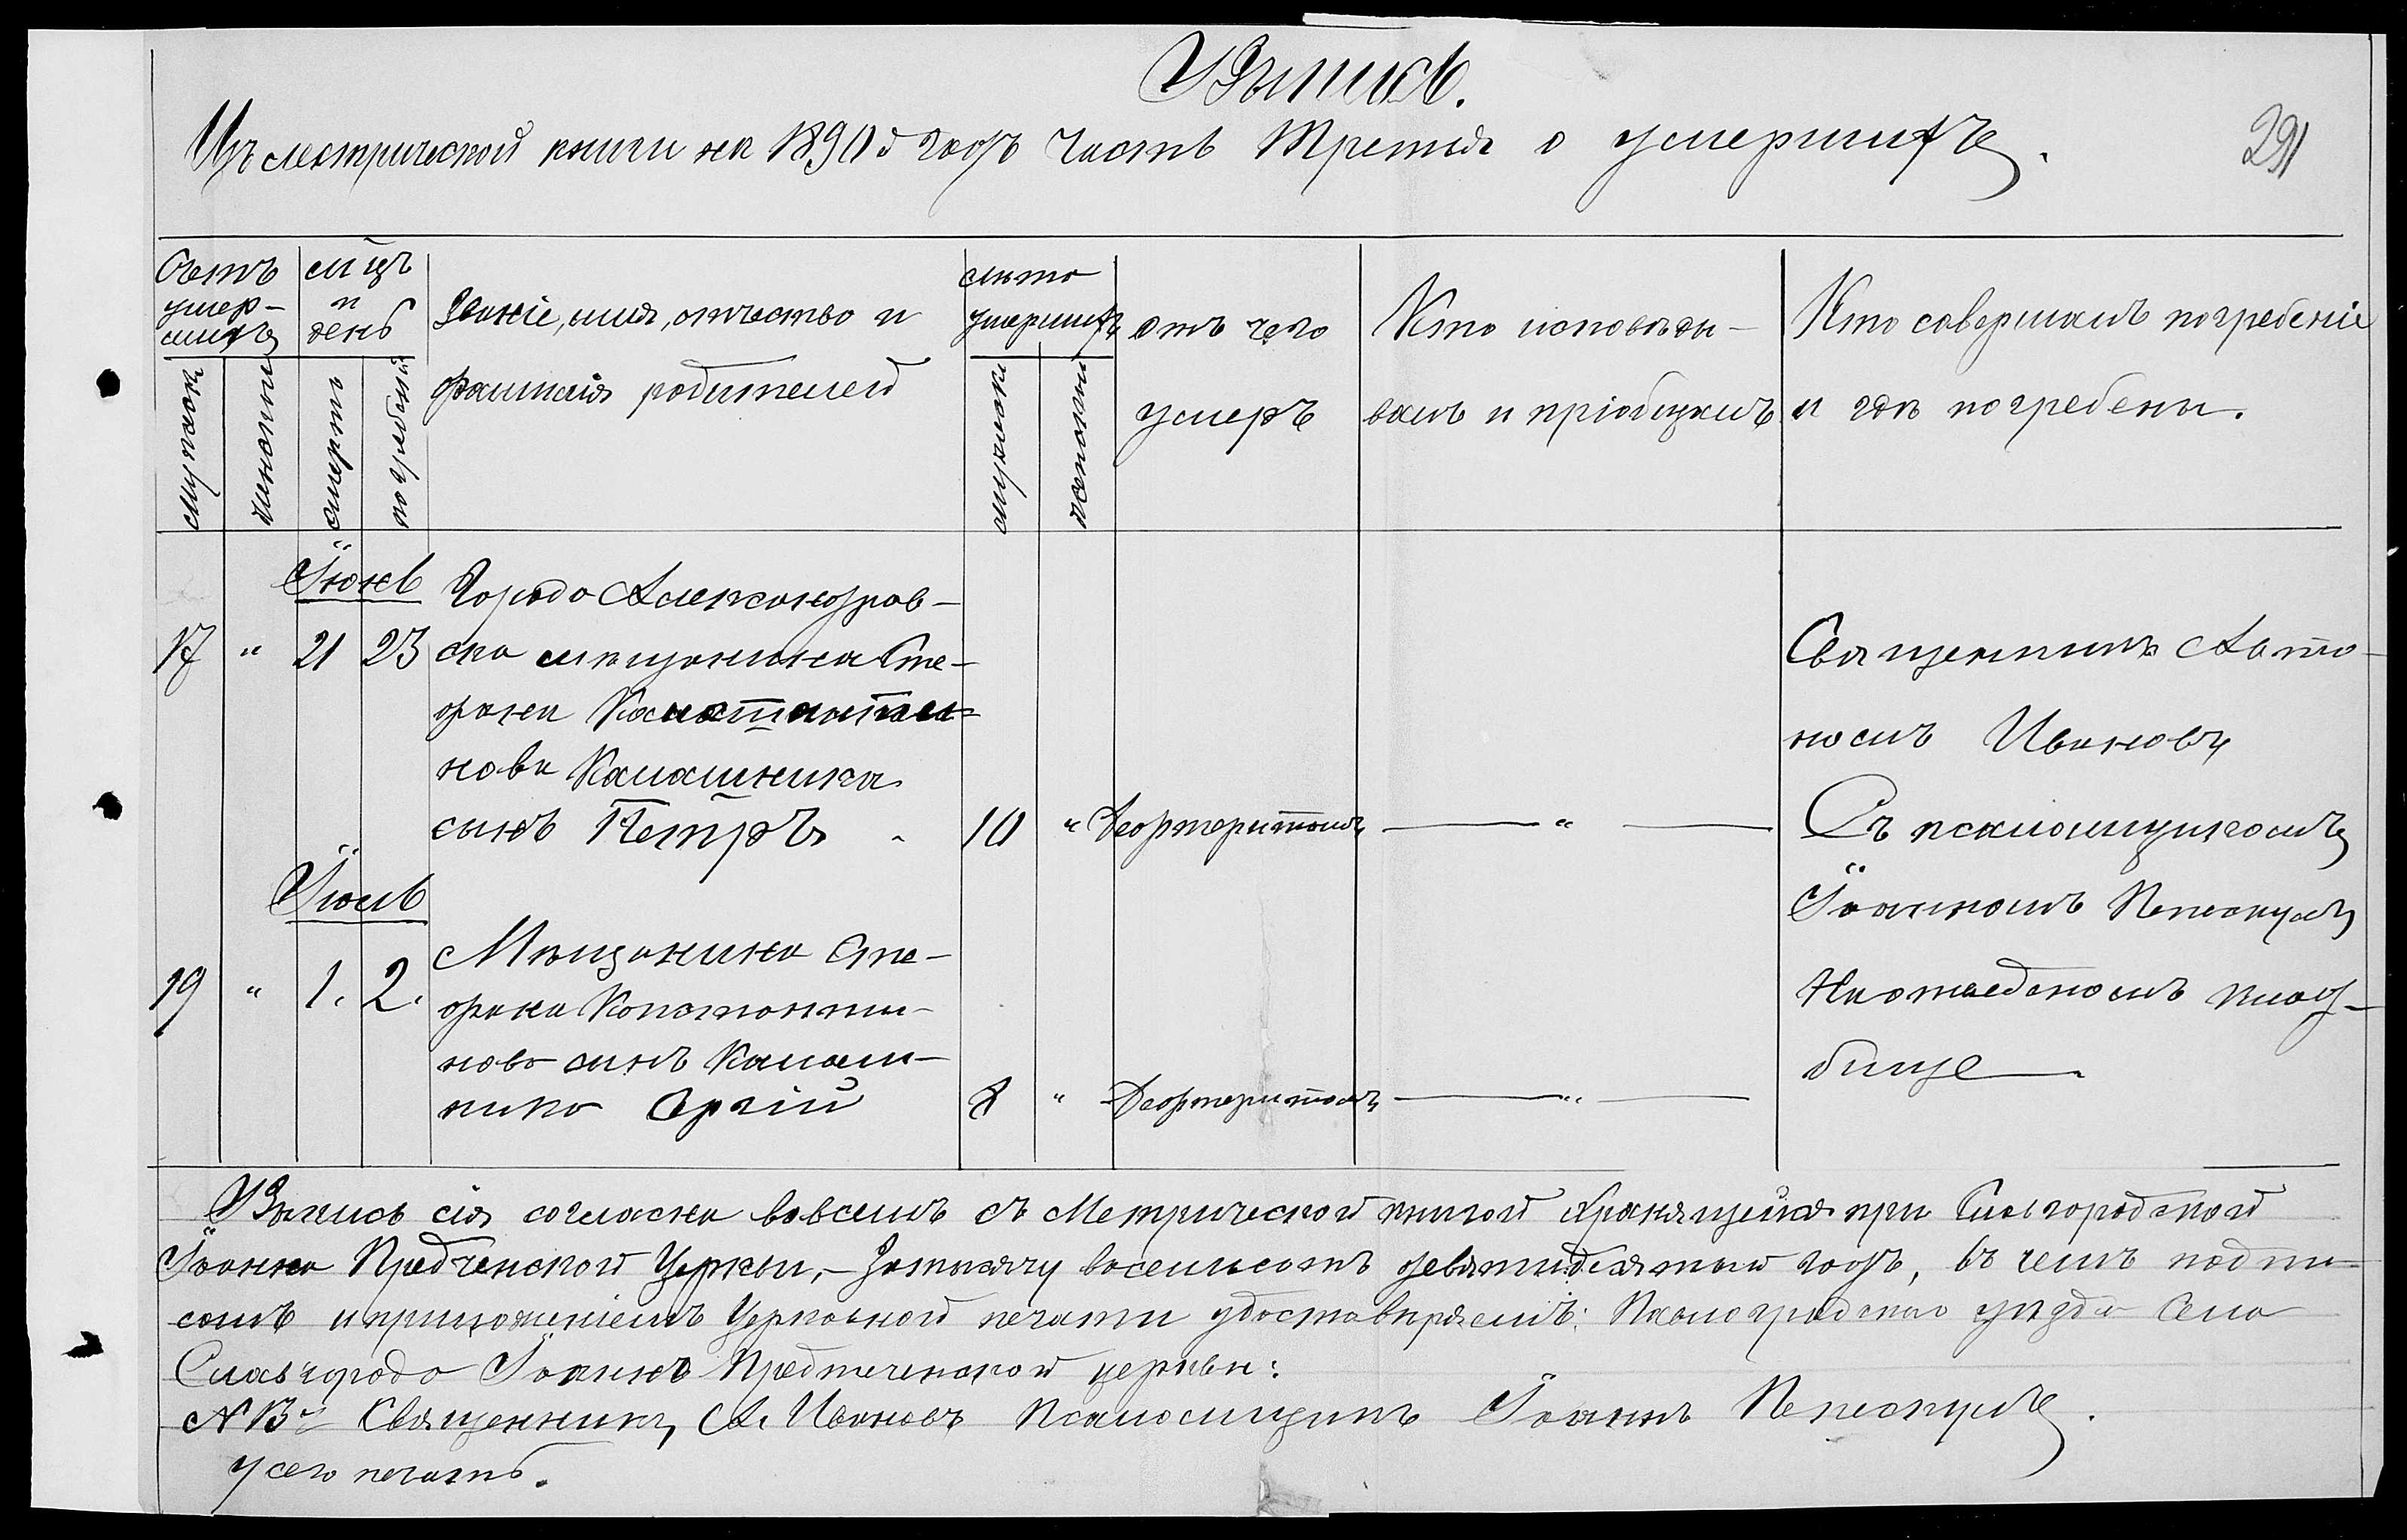 Выпись.
Изъ метрической книги на 1890й годъ часть Третья о умершихъ.
291
Счетъ умер-шихъ
мужеска
женска
м-цъ и день
смерть
погребенiя
Званiе, имя, отчество и
фамилiя родителей
лѣто умершихъ
мужеска
женска
отъ чего
умеръ
Кто исповѣды-
валъ и прiобщалъ
Кто совершалъ погребенiе
и гдѣ погребены.
Iюнь
17 " 21 23
Города Александров-
ска мѣщанина Сте-
фана Константи-
нова Калашника
сынъ Петръ
10 " Деофтеритомъ — " —
Священникъ Анто-
номъ Ивановъ
Съ псаломщикомъ
Iоанномъ Пепескулъ
На отведеномъ клад-
бище
Iюль
19 " 1. 2.
Мѣщанина Сте-
фана Константи-
нова сынъ Калаш-
ника Сергiй
8 " Деофтеритомъ — " —
Выпись сiя согласна вовсемъ съ Метрической книгой хранящейся при Славгородской
Iоанно Предченской Церквы, – Затысячу восемьсотъ девятидесятый годъ, въ чемъ подпи-
сомъ и приложенiемъ Церковной печати удоставѣряемъ: Павлоградскаго уѣзда Села
Славгорода Iоанно Предтеченской церквы:
Священникъ, А. Ивановъ Псаломщикъ Iоаннъ Пепескулъ.
у сего печать.